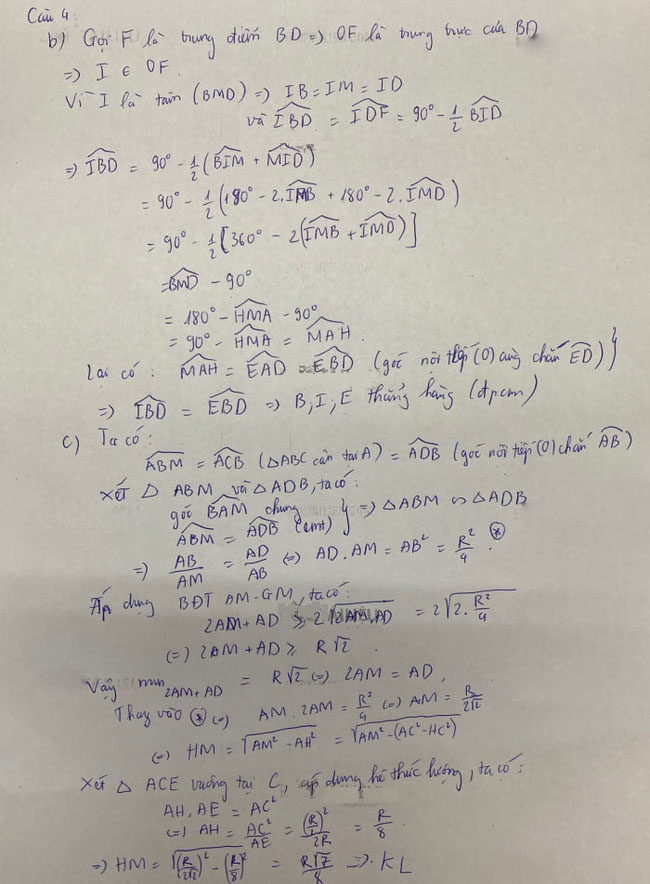 Câu 4:
b) Gọi F là trung điểm BD => OF là trung trực của BD
=> I ∈ OF.
Vì I là tâm (BMD) => IB = IM = ID
và ∠IBD = ∠IDF = 90° - 1/2 ∠BID
=> ∠IBD = 90° - 1/2 (∠BIM + ∠MID)
= 90° - 1/2 (180° - 2.∠IMB + 180° - 2.∠IMD)
= 90° - 1/2 [360° - 2(∠IMB + ∠IMD)]
= ∠BMD - 90°
= 180° - ∠HMA - 90°
= 90° - ∠HMA = ∠MAH.
Lại có: ∠MAH = ∠EAD ∠EBD (góc nội tiếp (O) cùng chắn ED) }
=> ∠IBD = ∠EBD => B, I, E thẳng hàng (đpcm)
c) Ta có:
∠ABM = ∠ACB (△ABC cân tại A) = ∠ADB (góc nội tiếp (O) chắn AB)
Xét △ ABM và △ ADB, ta có:
góc ∠BAM chung
∠ABM = ∠ADB (cmt) } => △ABM ∽ △ADB
=> AB/AM = AD/AB <=> AD.AM = AB² = R²/4. (*)
Áp dụng BĐT AM-GM, ta có:
2AM + AD ≥ 2√(2AM.AD) = 2√(2.R²/4)
<=> 2AM + AD ≥ R√2.
Vậy min 2AM+AD = R√2 <=> 2AM = AD,
Thay vào (*) <=> AM.2AM = R²/4 <=> AM = R/2√2
<=> HM = √(AM² - AH²) = √(AM² - (AC² - HC²))
Xét △ ACE vuông tại C, áp dụng hệ thức lượng, ta có:
AH.AE = AC²
<=> AH = AC²/AE = (R/2)²/2R = R/8.
=> HM = √((R/2√2)² - (R/8)²) = R√7/8 => KL